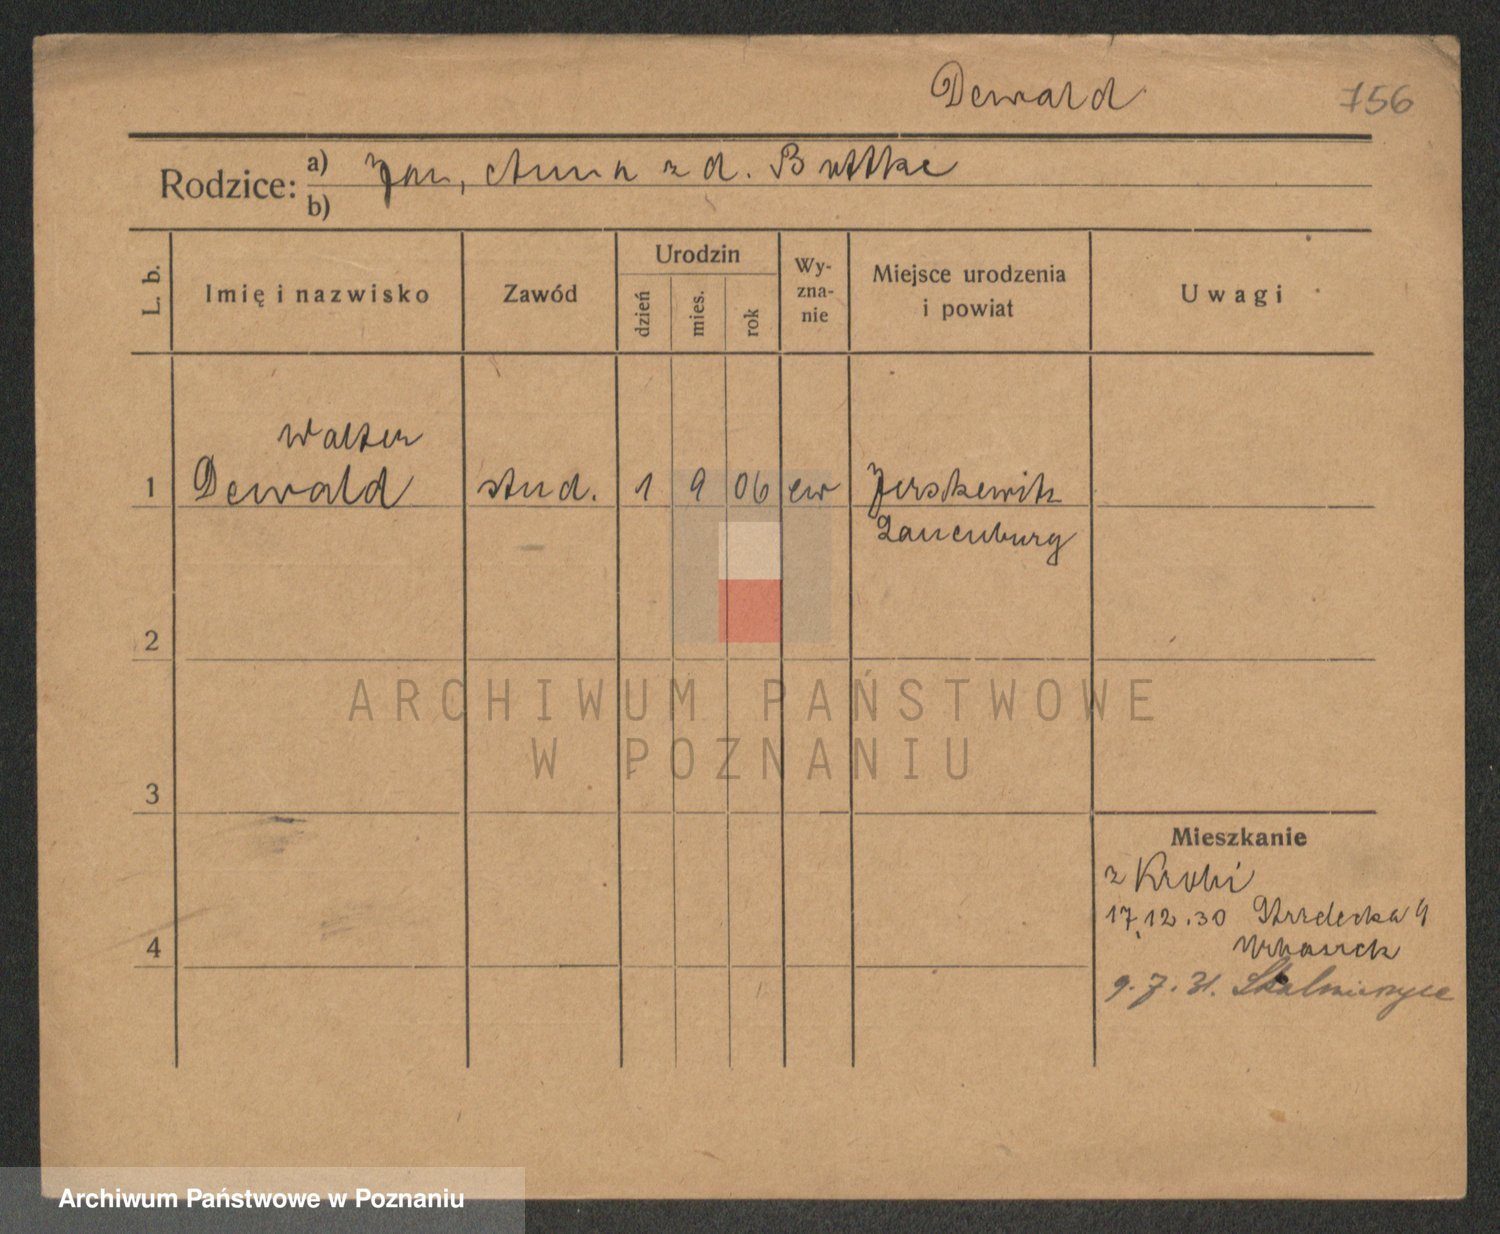 Dewald
756
Rodzice: a) Jan, Anna z d. Buttke
b)
L. b.
Imię i nazwisko
Zawód
Urodzin
dzień
mies.
rok
Wy-
zna-
nie
Miejsce urodzenia
i powiat
Uwagi
Walter
1 Dewald stud. 1 9 06 ew Jerskewitz
Lauenburg
2
3
4
Mieszkanie
z Krobi
17.12.30 Strzelecka 4
9.7.31. Skalmierzyce
ARCHIWUM PAŃSTWOWE
W POZNANIU
Archiwum Państwowe w Poznaniu